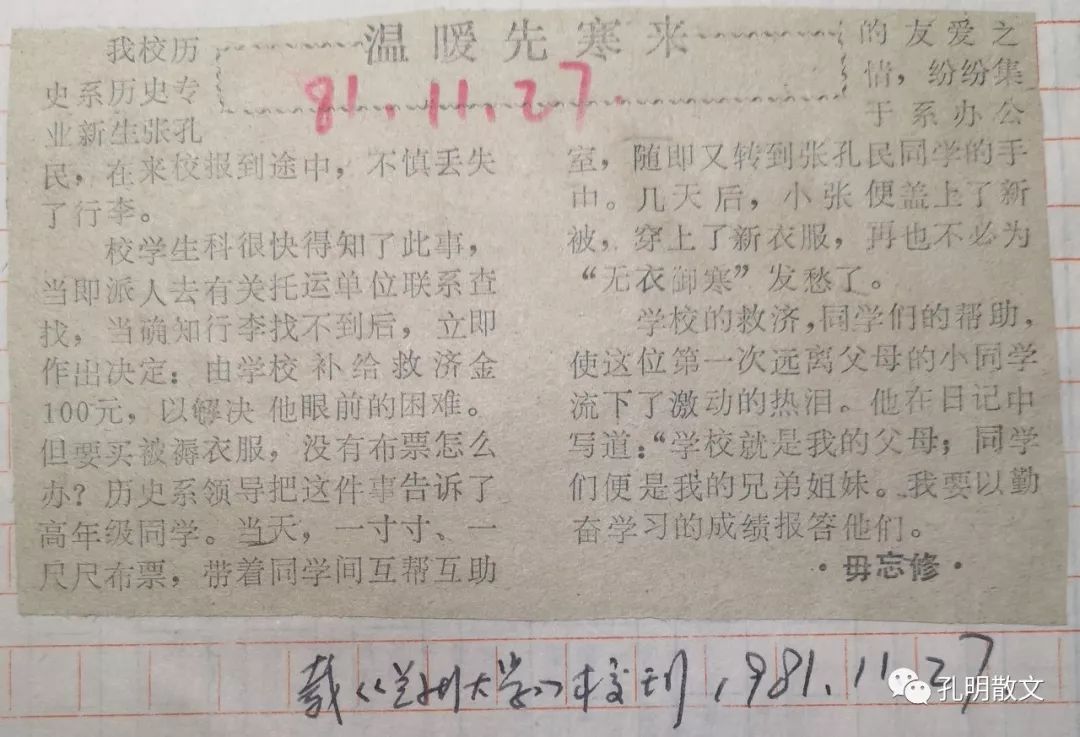 温暖先寒来
81.11.27.
我校历
史系历史专
业新生张孔
民，在来校报到途中，不慎丢失
了行李。
校学生科很快得知了此事，
当即派人去有关托运单位联系查
找，当确知行李找不到后，立即
作出决定：由学校补给救济金
100元，以解决他眼前的困难。
但要买被褥衣服，没有布票怎么
办？历史系领导把这件事告诉了
高年级同学。当天，一寸寸、一
尺尺布票，带着同学间互帮互助
的友爱之
情，纷纷集
于系办公
室，随即又转到张孔民同学的手
中。几天后，小张便盖上了新
被，穿上了新衣服，再也不必为
“无衣御寒”发愁了。
学校的救济，同学们的帮助，
使这位第一次远离父母的小同学
流下了激动的热泪。他在日记中
写道：“学校就是我的父母；同学
们便是我的兄弟姐妹。我要以勤
奋学习的成绩报答他们。
·毋忘修·
载《兰州大学》校刊，1981.11.27
孔明散文